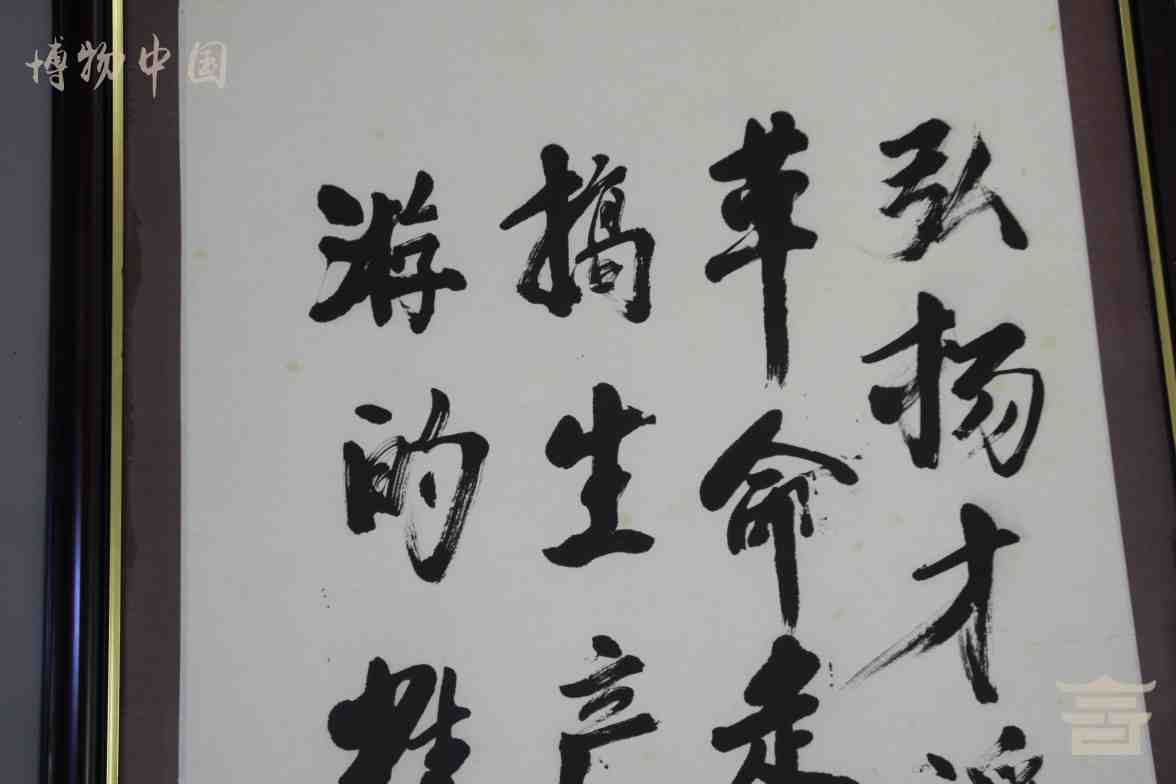 博物中国
弘扬才溪
革命走
搞生产
游的